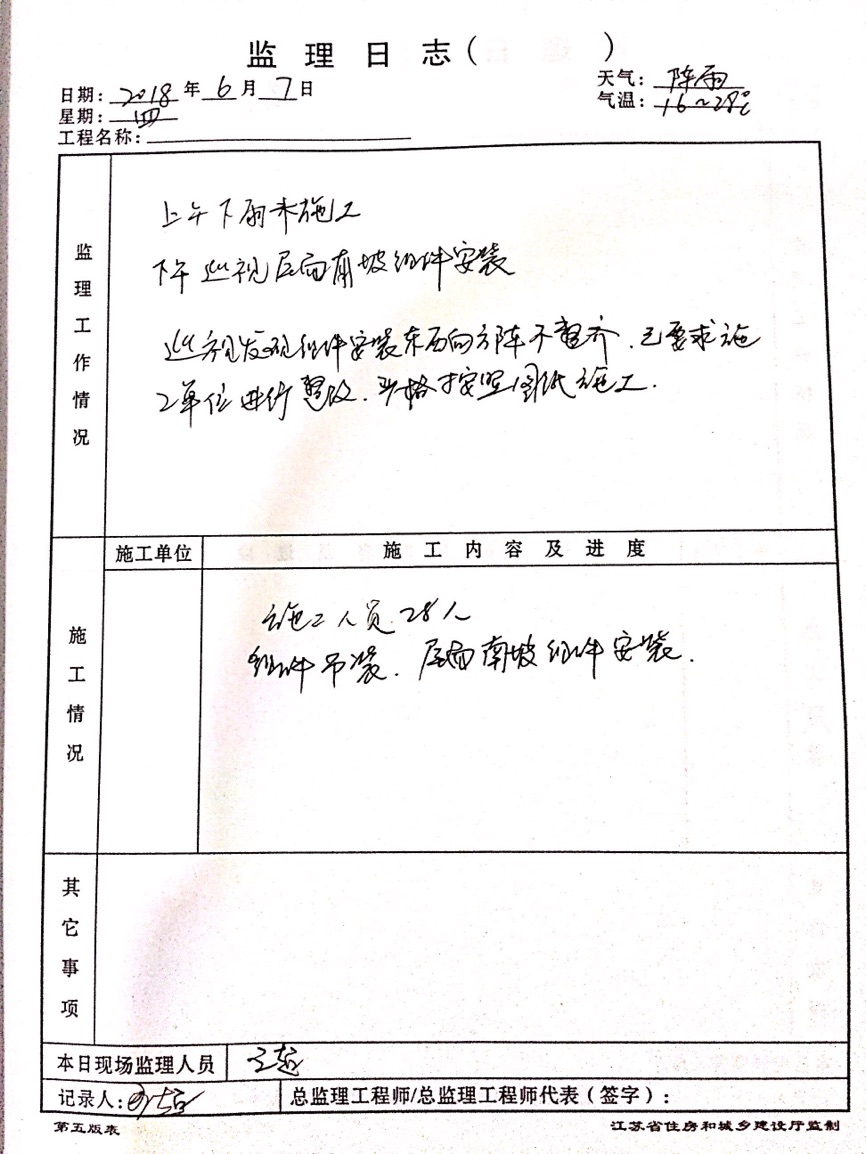 监理日志（ ）
日期：2018年6月7日 天气：阵雨
星期：四 气温：16～28℃
工程名称：
监理工作情况
上午下雨未施工
下午巡视屋面南坡组件安装
巡视发现组件安装东西向方阵不整齐．已要求施
工单位进行整改．严格按照图纸施工．
施工情况
施工单位 施工内容及进度
施工人员28人
组件吊装．屋面南坡组件安装．
其它事项
本日现场监理人员
记录人： 总监理工程师/总监理工程师代表（签字）：
第五版表 江苏省住房和城乡建设厅监制